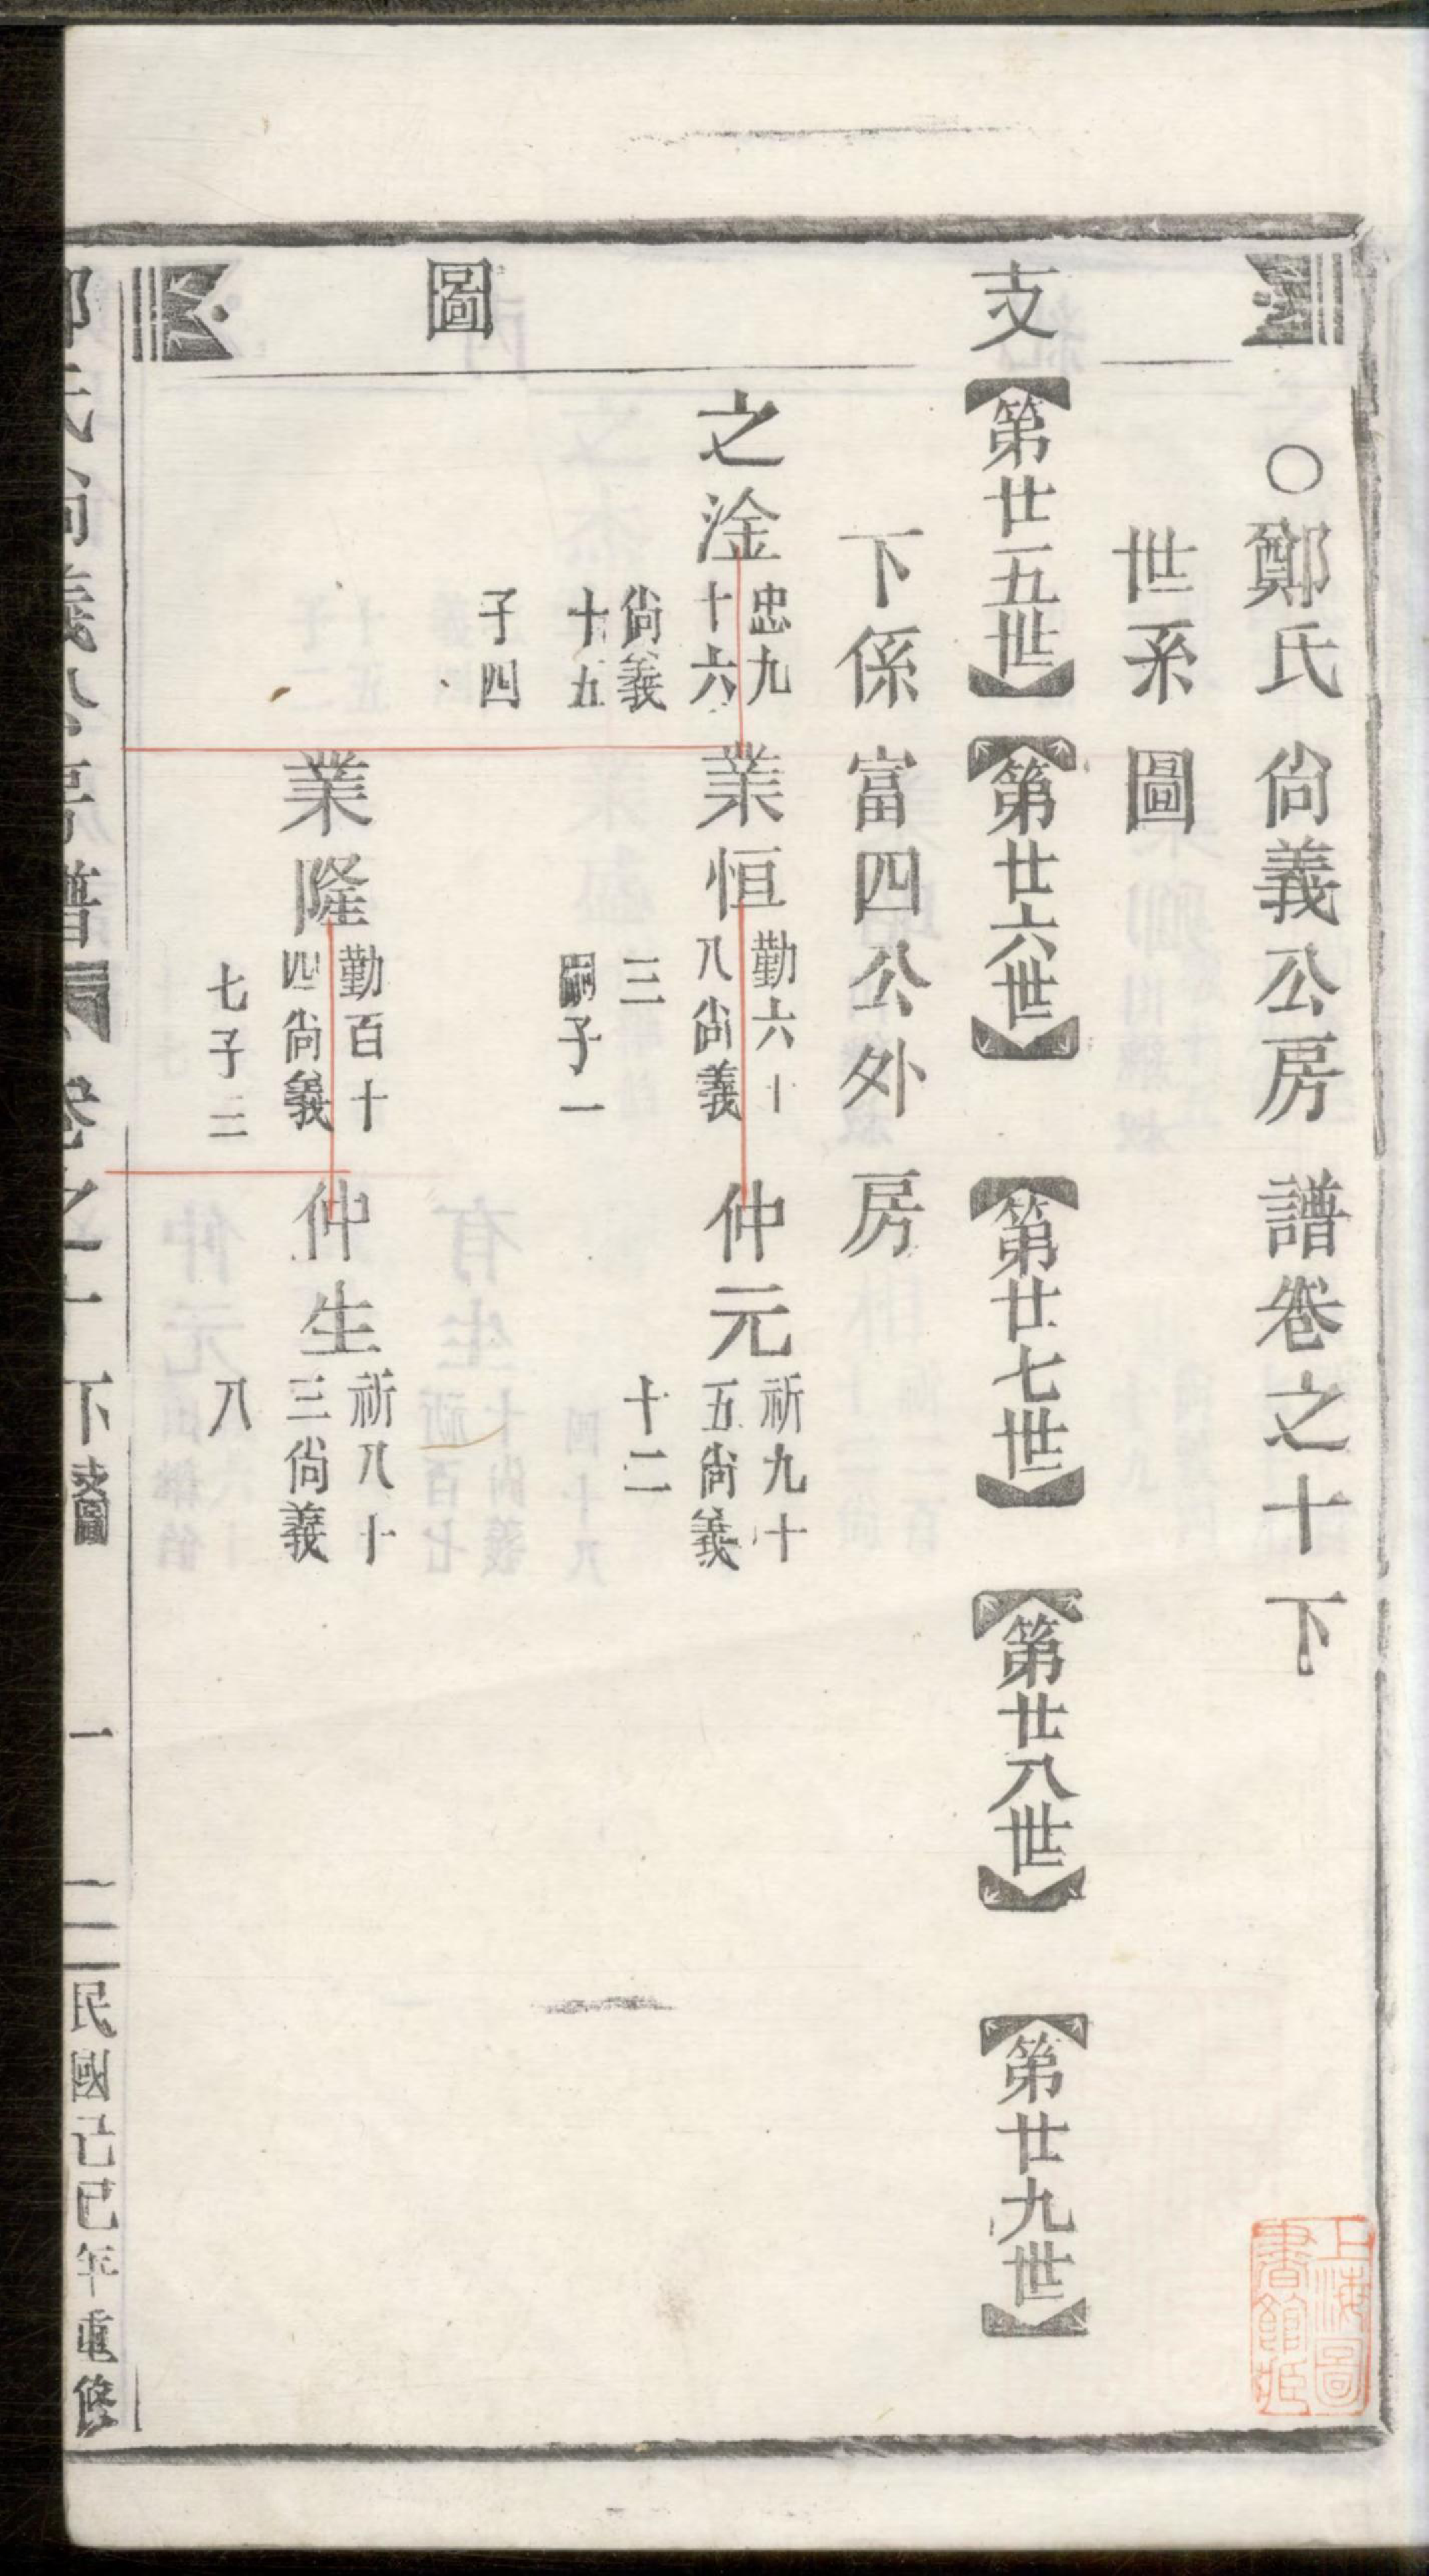 ○鄭氏尙義公房譜卷之十下
世系圖
支圖
【第廿五世】【第廿六世】【第廿七世】【第廿八世】【第廿九世】
下係富四公外房
之淦
忠九
十六
尙義
十五
子四
業恒
勤六十
八尙義
三
嗣子一
仲元
祈九十
五尙義
十二
業隆
勤百十
四尙義
七子二
仲生
祈八十
三尙義
八
鄭氏尙義公房譜 卷之十下 支圖 一 民國己巳年重修
上海圖
書館藏